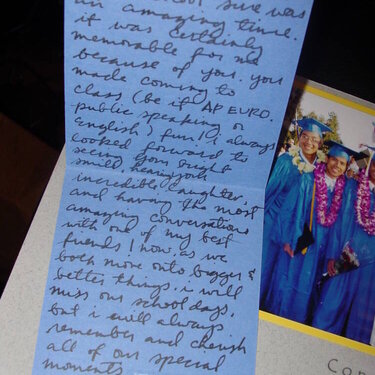 school sure was
an amazing time.
it was certainly
memorable for me
because of you. you
made coming to
class (be it AP EURO,
public speaking or
english) fun! i always
looked forward to
seeing your bright
smile, hearing your
incredible laughter,
and having the most
amazing conversations
with one of my best
friends! now, as we
both move onto bigger &
better things, i will
miss our school days,
but i will always
remember and cherish
all of our special
moments
Con